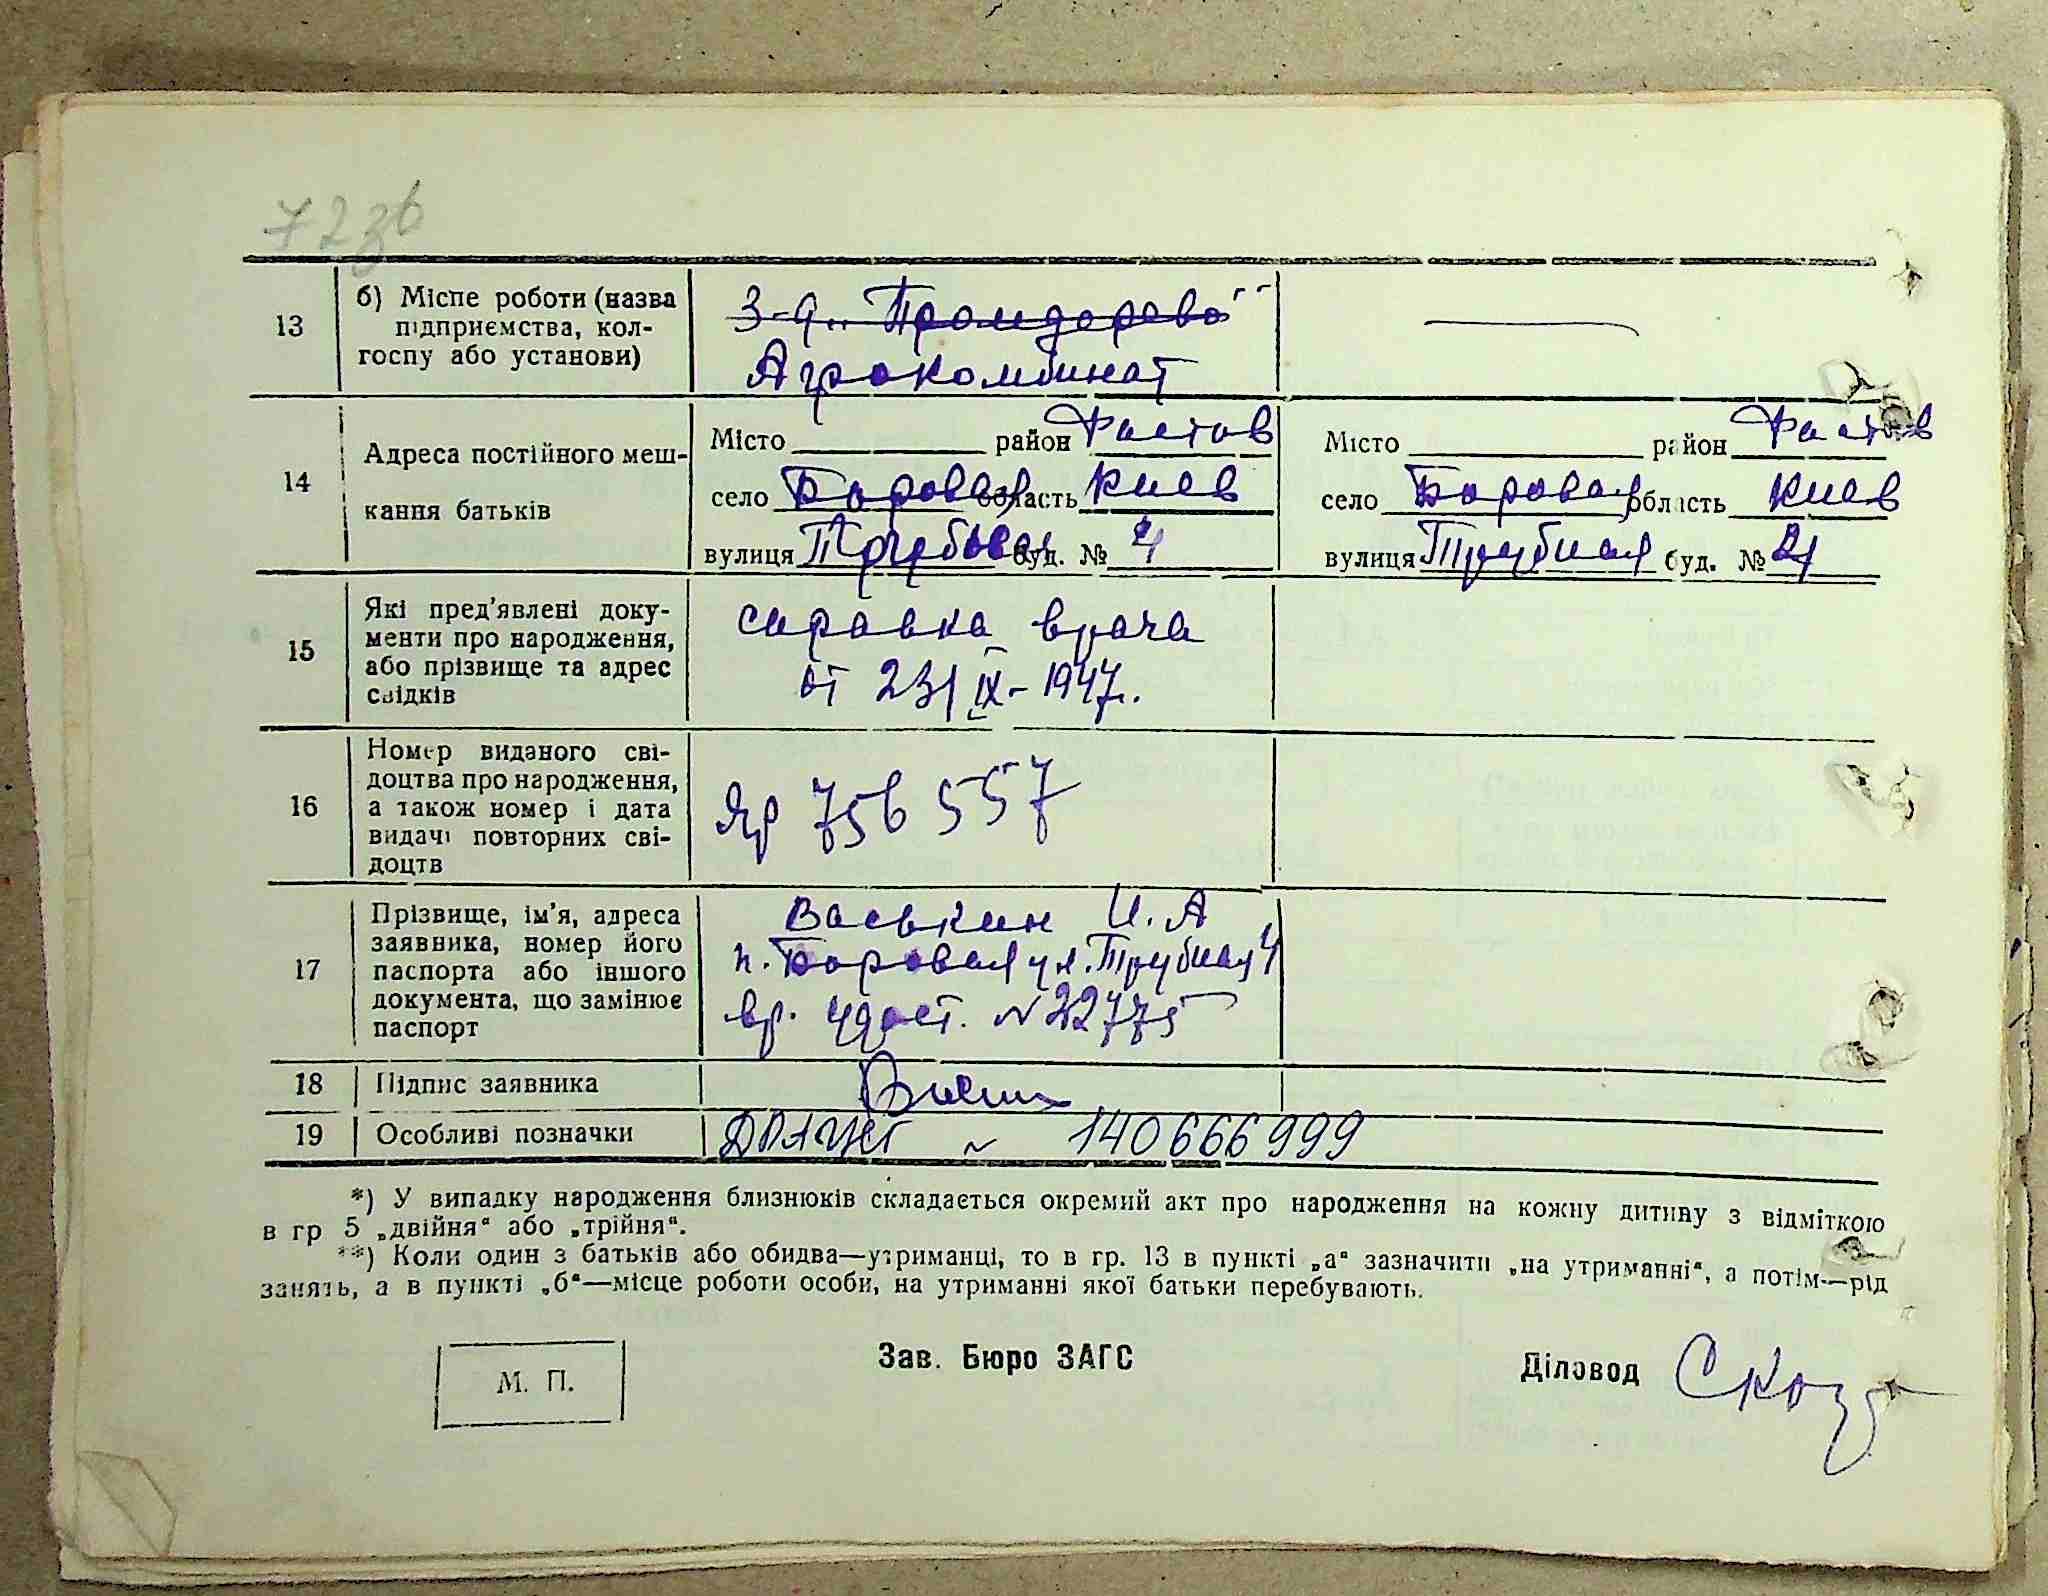 72зв
13
б) Місце роботи (назва
підприємства, кол-
госпу або установи)
З-д „Промдерево"
Агрокомбинат
14
Адреса постійного меш-
кання батьків
Місто район Фастов
село Боровая область Киев
вулиця буд. № 4
Місто район Фастов
село Боровая область Киев
вулиця Трубная буд. № 4
15
Які пред'явлені доку-
менти про народження,
або прізвище та адрес
свідків
справка врача
от 23/IX-1947.
16
Номер виданого сві-
доцтва про народження,
а також номер і дата
видачі повторних сві-
доцтв
ЯР 756557
17
Прізвище, ім'я, адреса
заявника, номер його
паспорта або іншого
документа, що замінює
паспорт
Васькин И. А
п. Боровая ул. Трубная 4
вр. удост. № 22775
18
Підпис заявника
19
Особливі позначки
№ 140666999
*) У випадку народження близнюків складається окремий акт про народження на кожну дитину з відміткою
в гр 5 „двійня" або „трійня".
**) Коли один з батьків або обидва—утриманці, то в гр. 13 в пункті „а" зазначити „на утриманні", а потім—рід
занять, а в пункті „б"—місце роботи особи, на утриманні якої батьки перебувають.
М. П.
Зав. Бюро ЗАГС
Діловод